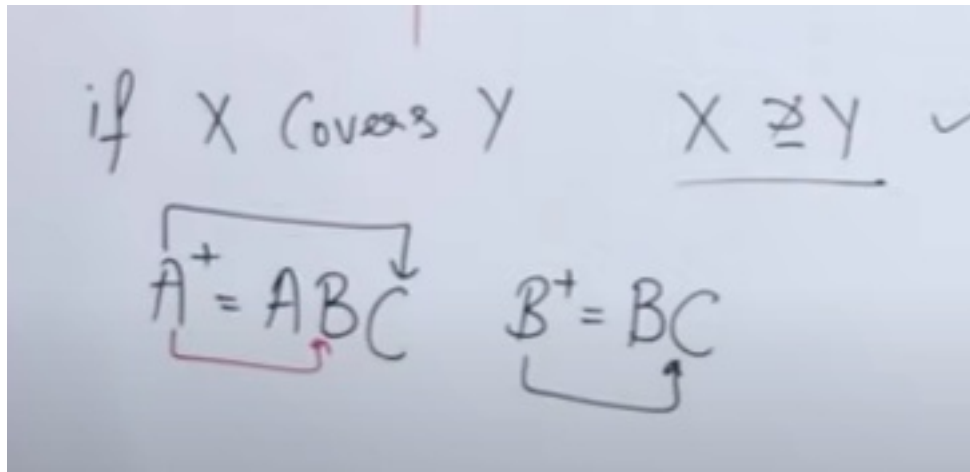 if X Covers Y X ⊇ Y ✓
A⁺ = ABC B⁺ = BC